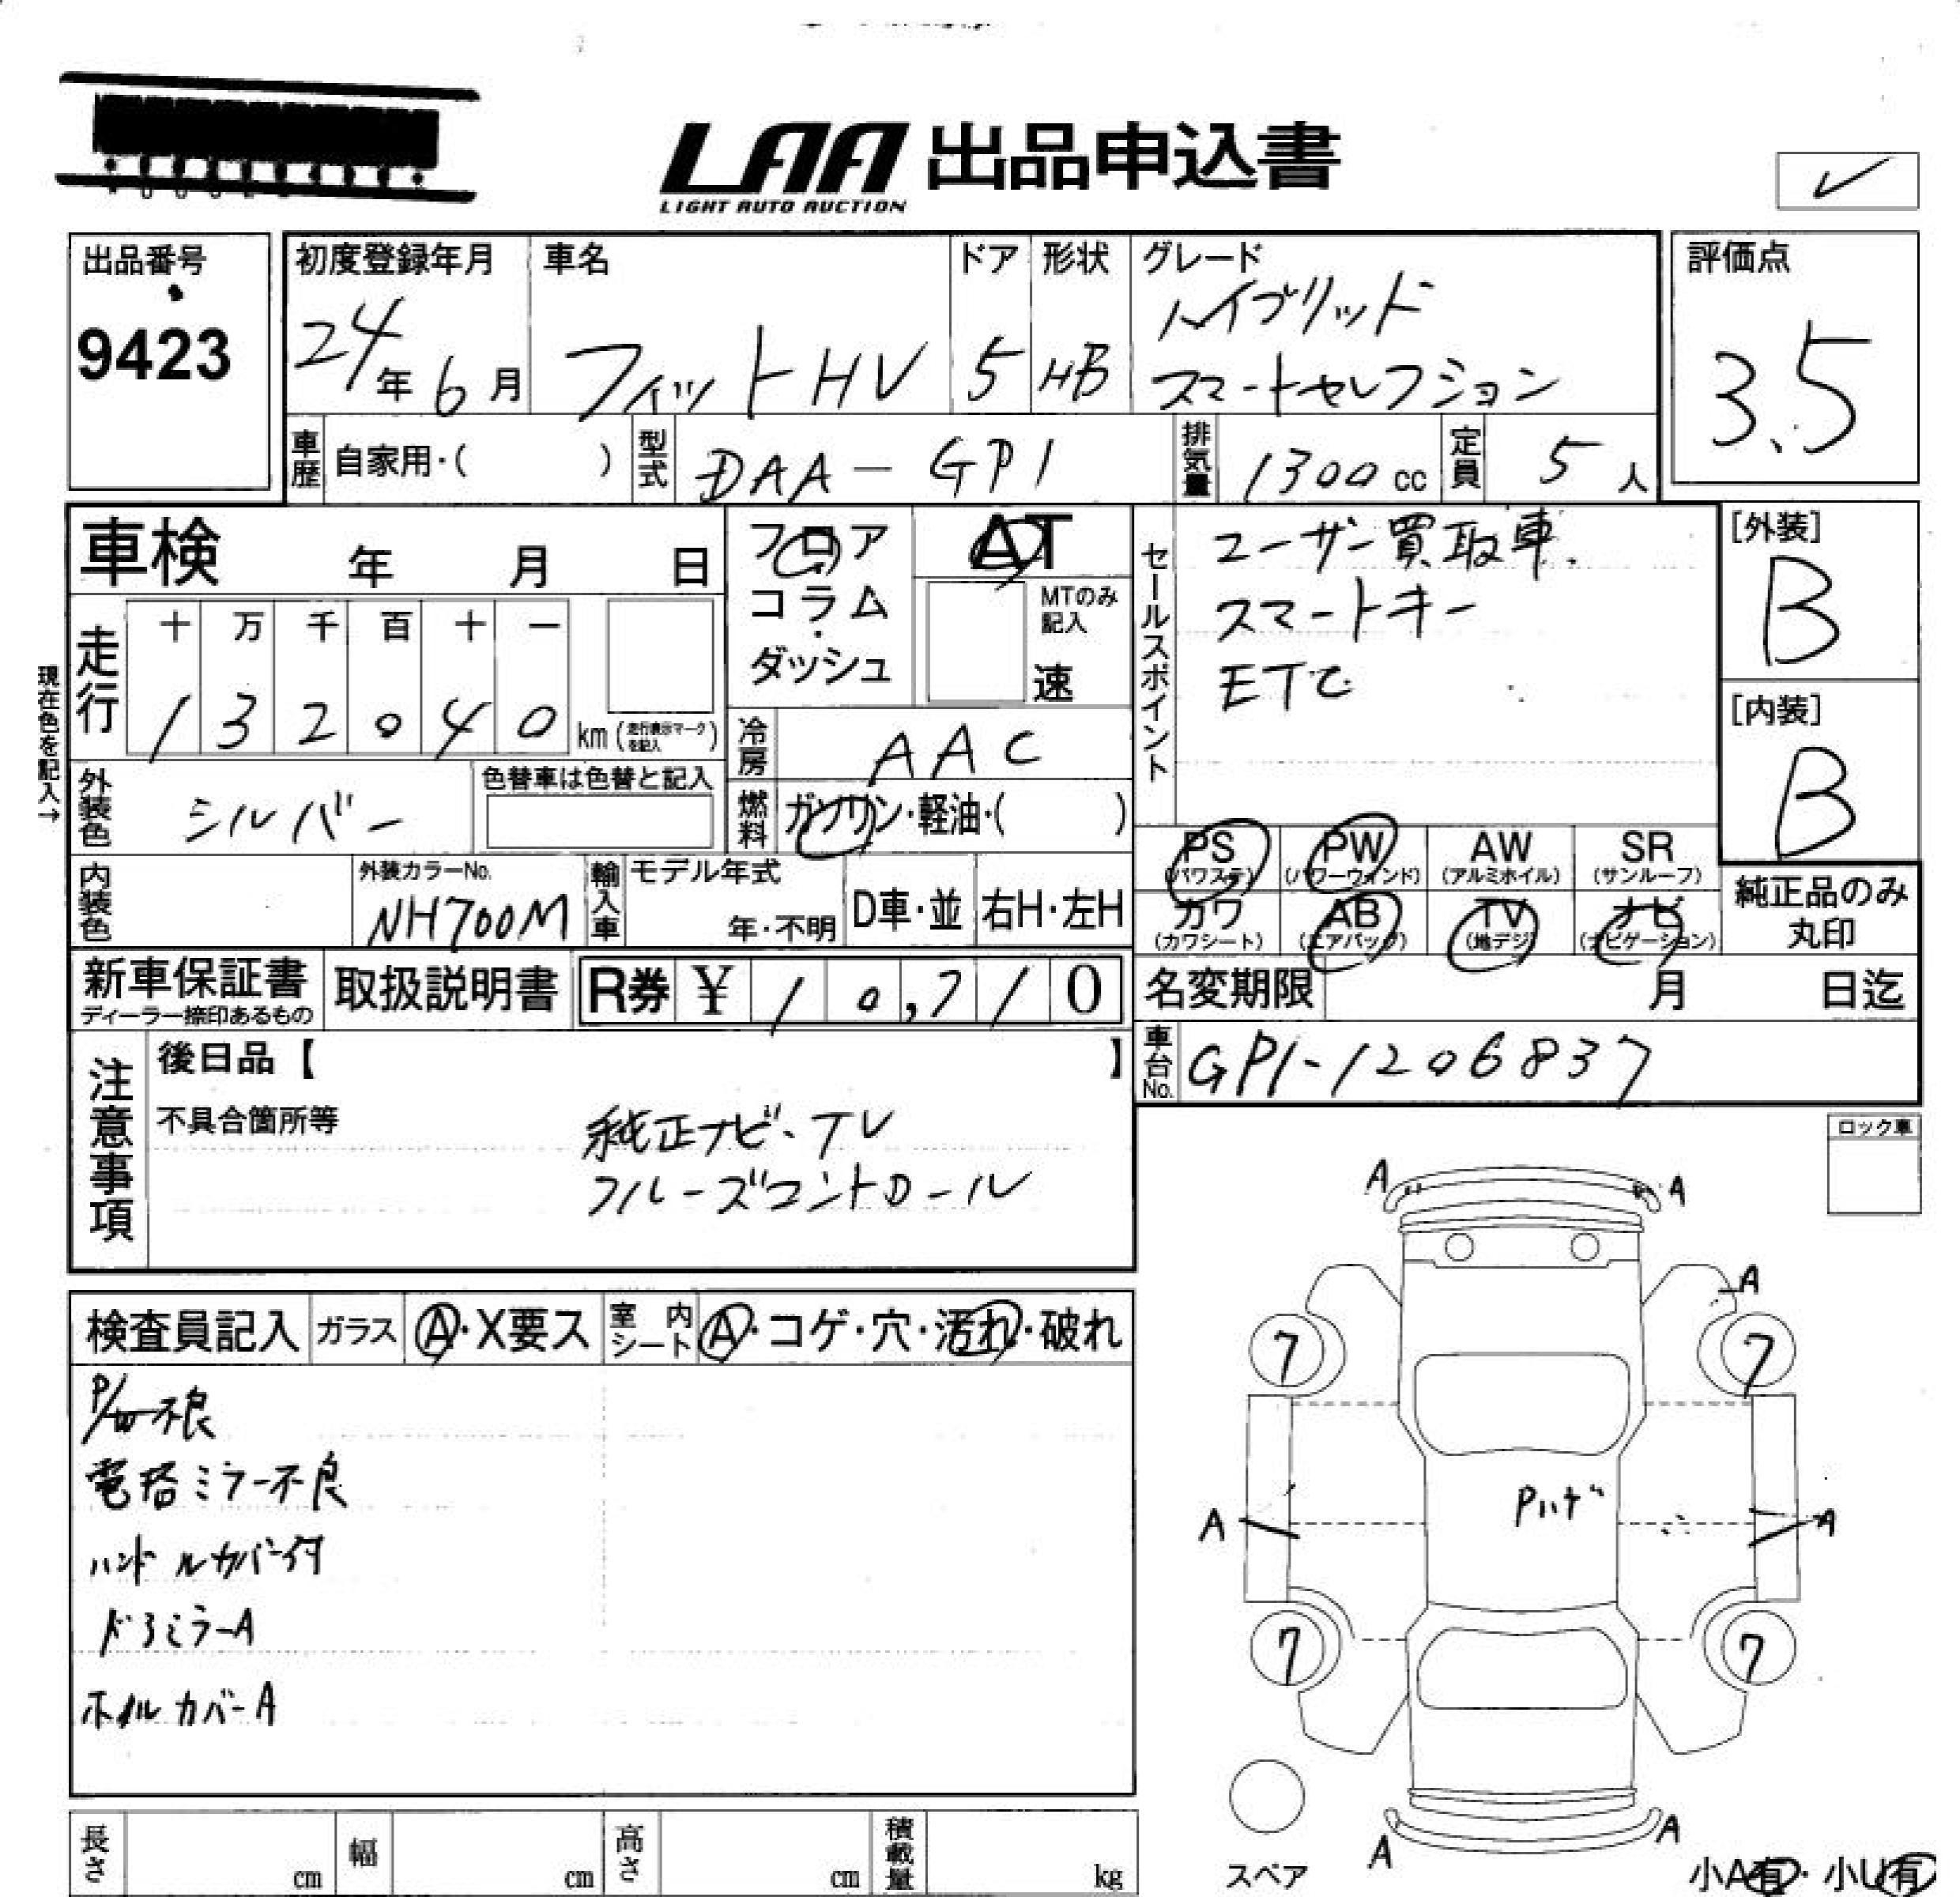 LAA 出品申込書
LIGHT AUTO AUCTION
出品番号
9423
初度登録年月
24年6月
車名
フィットHV
ドア
5
形状
HB
グレード
ハイブリッド
スマートセレクション
評価点
3.5
車歴
自家用・( )
型式
DAA-GP1
排気量
1300cc
定員
5人
車検 年 月 日
フロア
コラム
・
ダッシュ
AT
MTのみ
記入
速
セールスポイント
ユーザー買取車.
スマートキー
ETC
[外装]
B
[内装]
B
現在色を記入→
走行
十 万 千 百 十 一
1 3 2 0 4 0 km(走行表示マークを記入)
冷房
AAC
外装色
シルバー
色替車は色替と記入
燃料
ガソリン・軽油・( )
PS (パワステ)
PW (パワーウィンド)
AW (アルミホイル)
SR (サンルーフ)
カワ (カワシート)
AB (エアバック)
TV (地デジ)
ナビ (ナビゲーション)
純正品のみ
丸印
内装色
外装カラーNo.
NH700M
輸入車
モデル年式
年・不明
D車・並
右H・左H
新車保証書
ディーラー捺印あるもの
取扱説明書
R券 ¥ 10,710
名変期限 月 日迄
車台No.
GP1-1206837
注意事項
後日品【 】
不具合箇所等
純正ナビ・TV
クルーズコントロール
ロック車
検査員記入
ガラス
A・X要ス
室内シート
A・コゲ・穴・汚れ・破れ
P/W不良
電格ミラー不良
ハンドルカバー付
ドアミラーA
ホイルカバーA
A A
A
7 7
A Pハゲ A
7 7
A A
スペア
小A有・小U有
長さ cm
幅 cm
高さ cm
積載量 kg